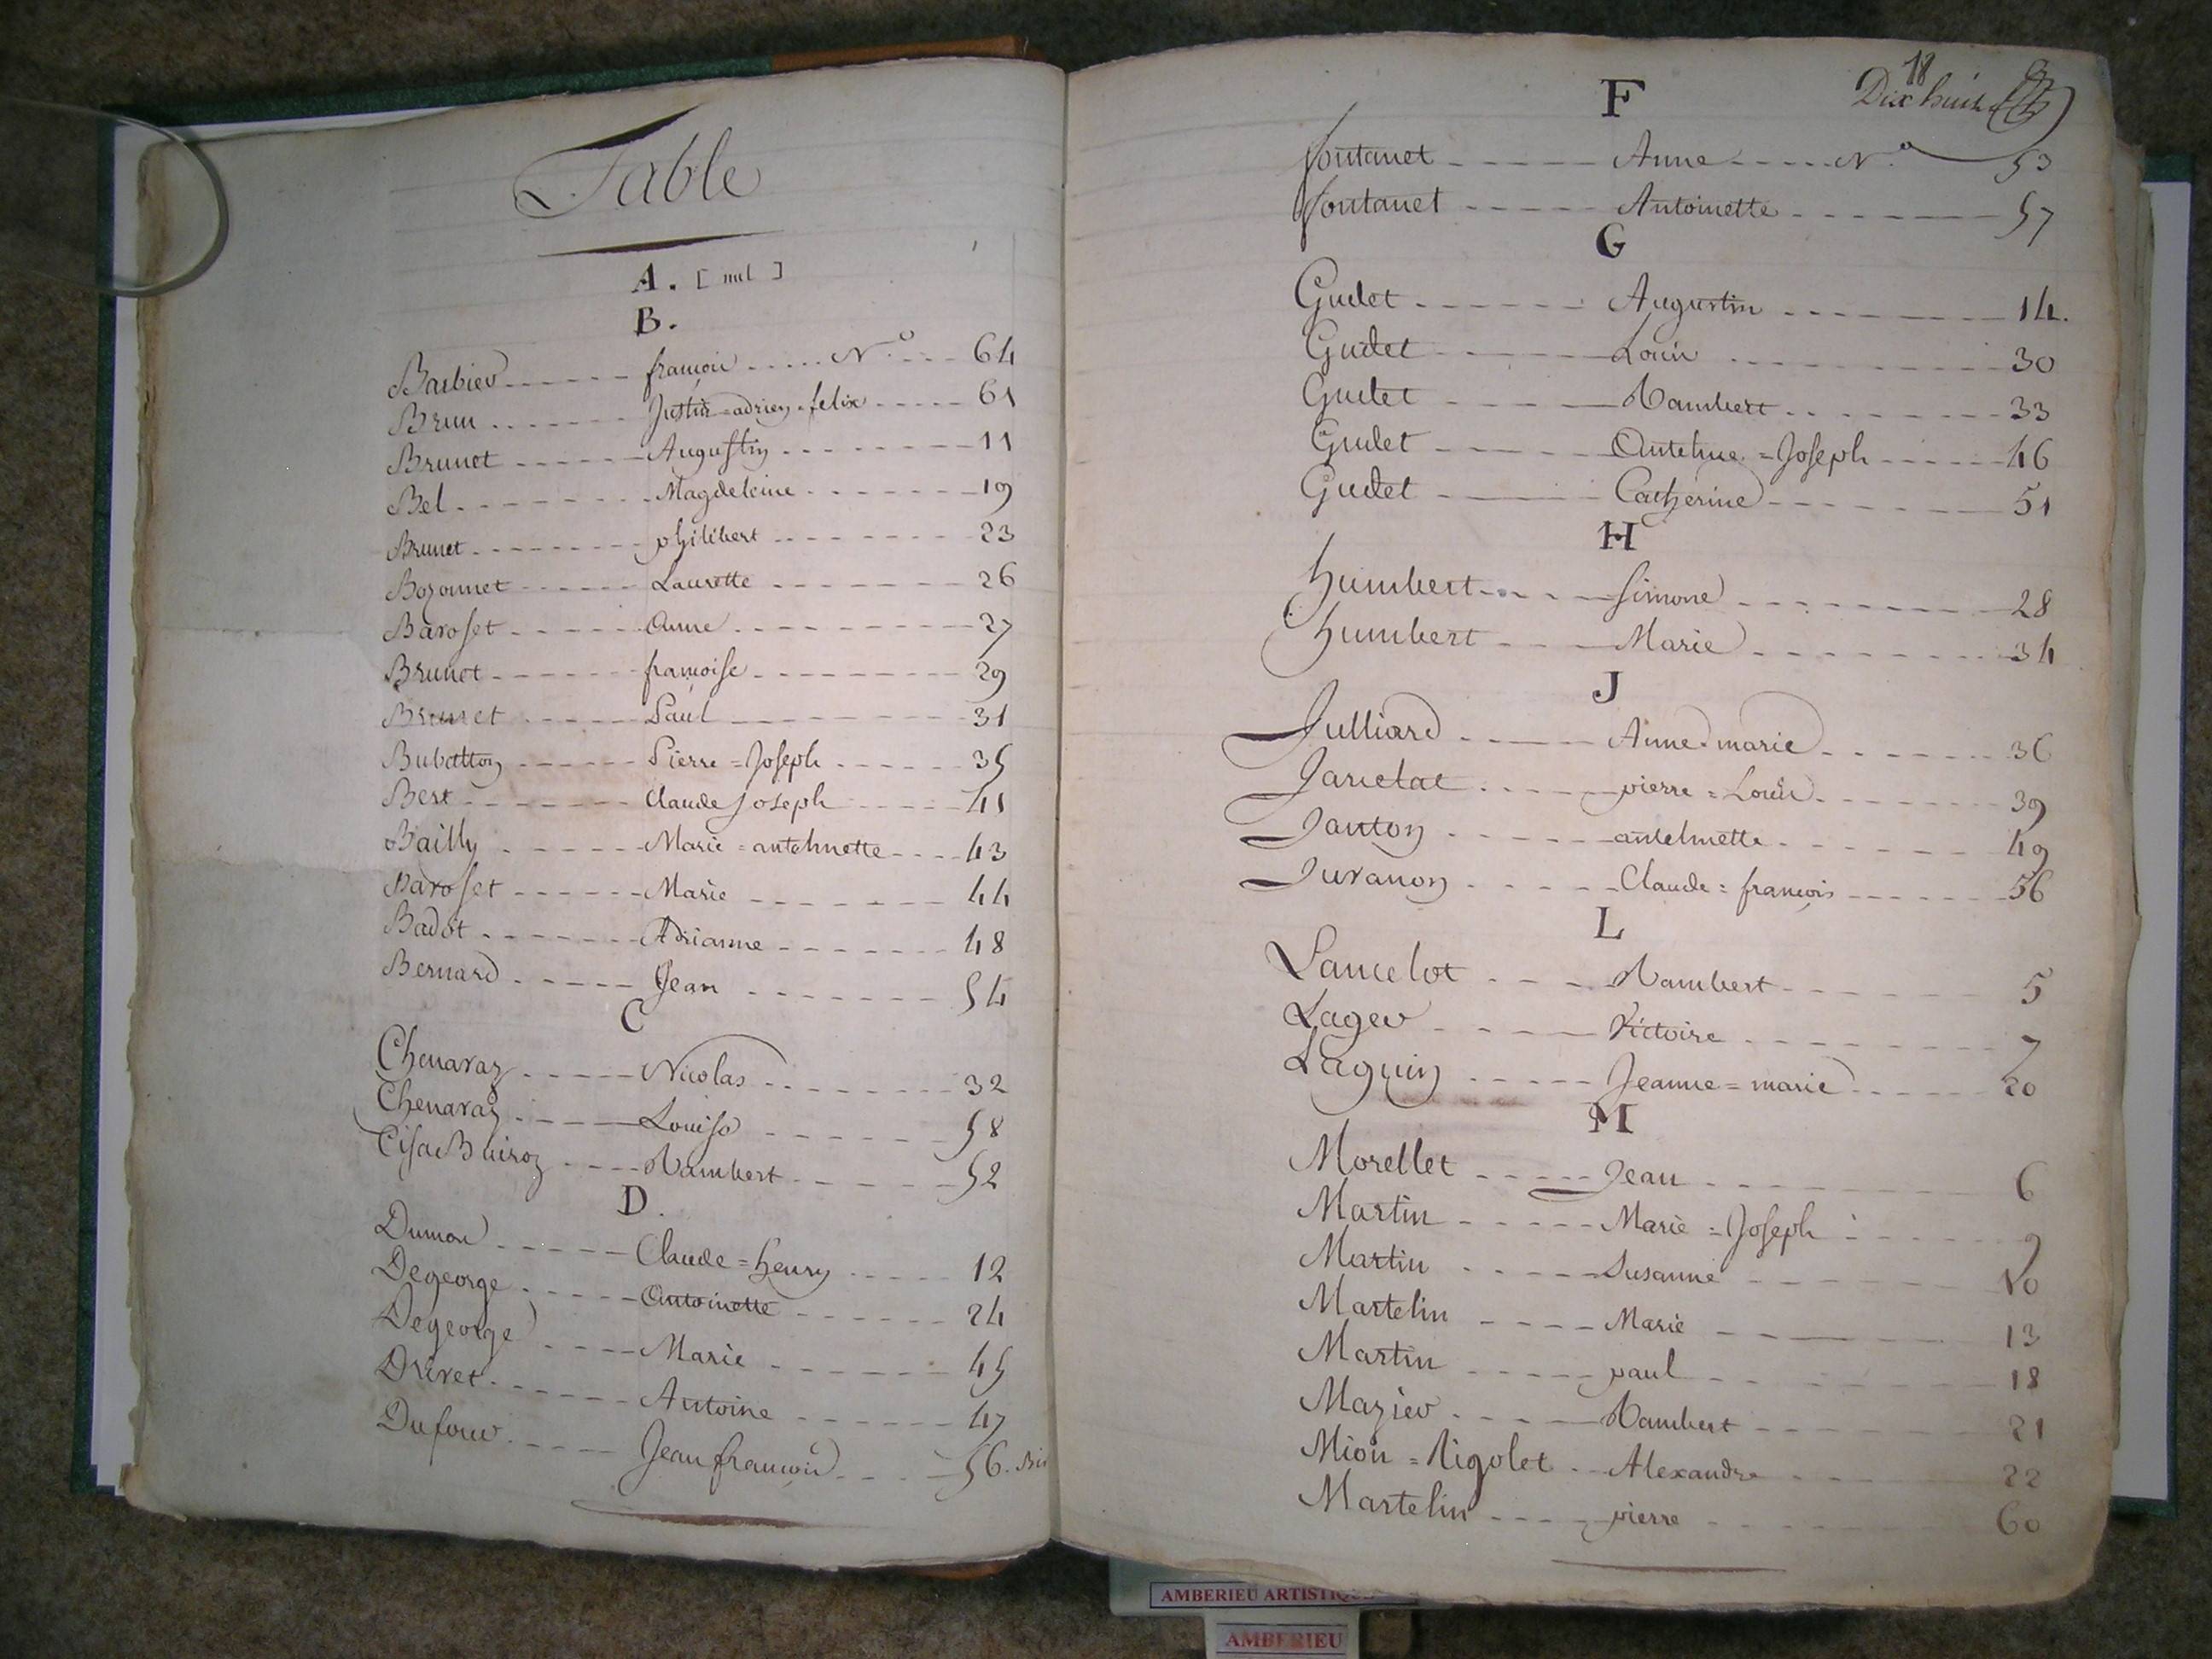 Table
A. [nul]
B.
Barbier francois N.o 64
Brun Justin=adrien=felix 61
Brunet Augustin 11
Bel Magdeleine 19
Brunet philibert 23
Bozonnet Laurette 26
Baroset Anne 27
Brunet françoise 29
Brunet Paul 31
Bubatton Pierre=Joseph 35
Bert Claude Joseph 41
Bailly Marie=antelmette 43
Baroset Marie 44
Badot Adrianne 48
Bernard Jean 54
C
Chenavaz Nicolas 32
Chenavaz Louise 58
Rambert 52
D.
Dumon Claude=henry 12
Degeorge Antoinette 24
Degeorge Marie 45
Drivet Antoine 47
Dufour Jean françois 56. Bis
18
Dix huit
F
fontanet Anne N.o 53
fontanet Antoinette 57
G
Gudet Augustin 14.
Gudet Louis 30
Gudet Rambert 33
Gudet Antelme=Joseph 46
Gudet Catherine 51
H
humbert Simone 28
humbert Marie 34
J
Julliard Anne=marie 36
Jancelat pierre=Louis 39
Janton antelmette 49
Juvanon Claude=françois 56
L
Lancelot Rambert 5
Lager Victoire 7
Laguin Jeanne=marie 20
M
Morellet Jean 6
Martin Marie=Joseph 9
Martin Susanne 10
Martelin Marie 13
Martin paul 18
Mazier Rambert 21
Mion=Rigolet Alexandre 22
Martelin pierre 60
AMBERIEU ARTISTIQUE
AMBERIEU